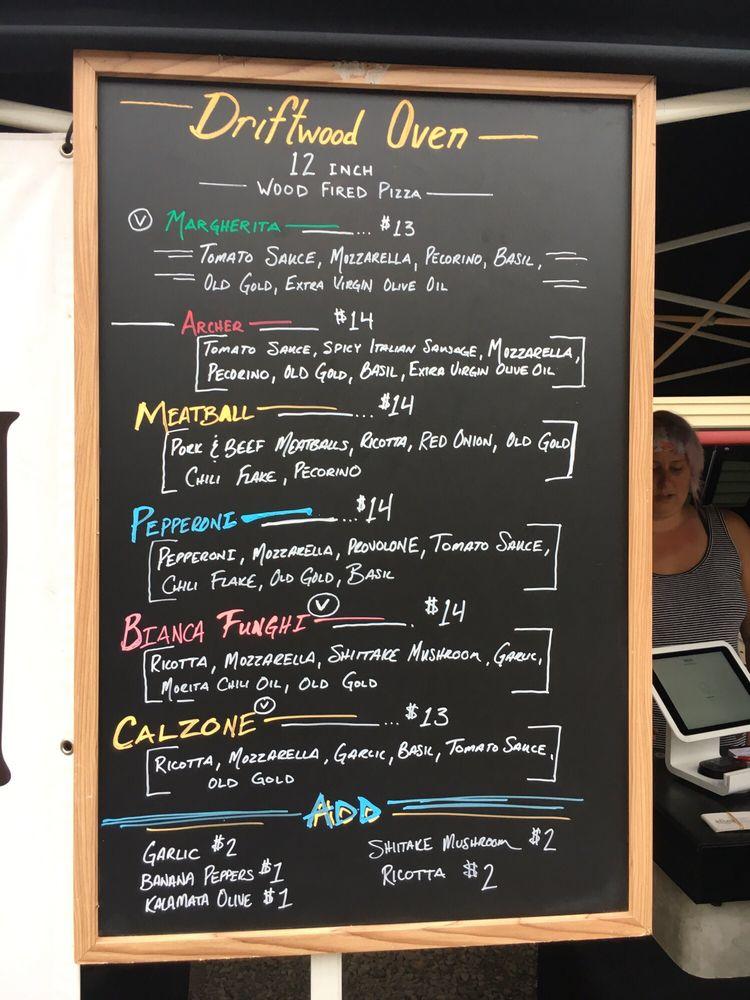 Driftwood Oven
12 INCH
WOOD FIRED PIZZA
Ⓥ MARGHERITA ... $13
TOMATO SAUCE, MOZZARELLA, PECORINO, BASIL,
OLD GOLD, EXTRA VIRGIN OLIVE OIL
ARCHER $14
TOMATO SAUCE, SPICY ITALIAN SAUSAGE, MOZZARELLA,
PECORINO, OLD GOLD, BASIL, EXTRA VIRGIN OLIVE OIL
MEATBALL ... $14
PORK & BEEF MEATBALLS, RICOTTA, RED ONION, OLD GOLD
CHILI FLAKE, PECORINO
PEPPERONI ... $14
PEPPERONI, MOZZARELLA, PROVOLONE, TOMATO SAUCE,
CHILI FLAKE, OLD GOLD, BASIL
BIANCA FUNGHI Ⓥ . $14
RICOTTA, MOZZARELLA, SHIITAKE MUSHROOM, GARLIC,
MORITA CHILI OIL, OLD GOLD
CALZONE Ⓥ ... $13
RICOTTA, MOZZARELLA, GARLIC, BASIL, TOMATO SAUCE,
OLD GOLD
ADD
GARLIC $2
BANANA PEPPERS $1
KALAMATA OLIVE $1
SHIITAKE MUSHROOM $2
RICOTTA $2